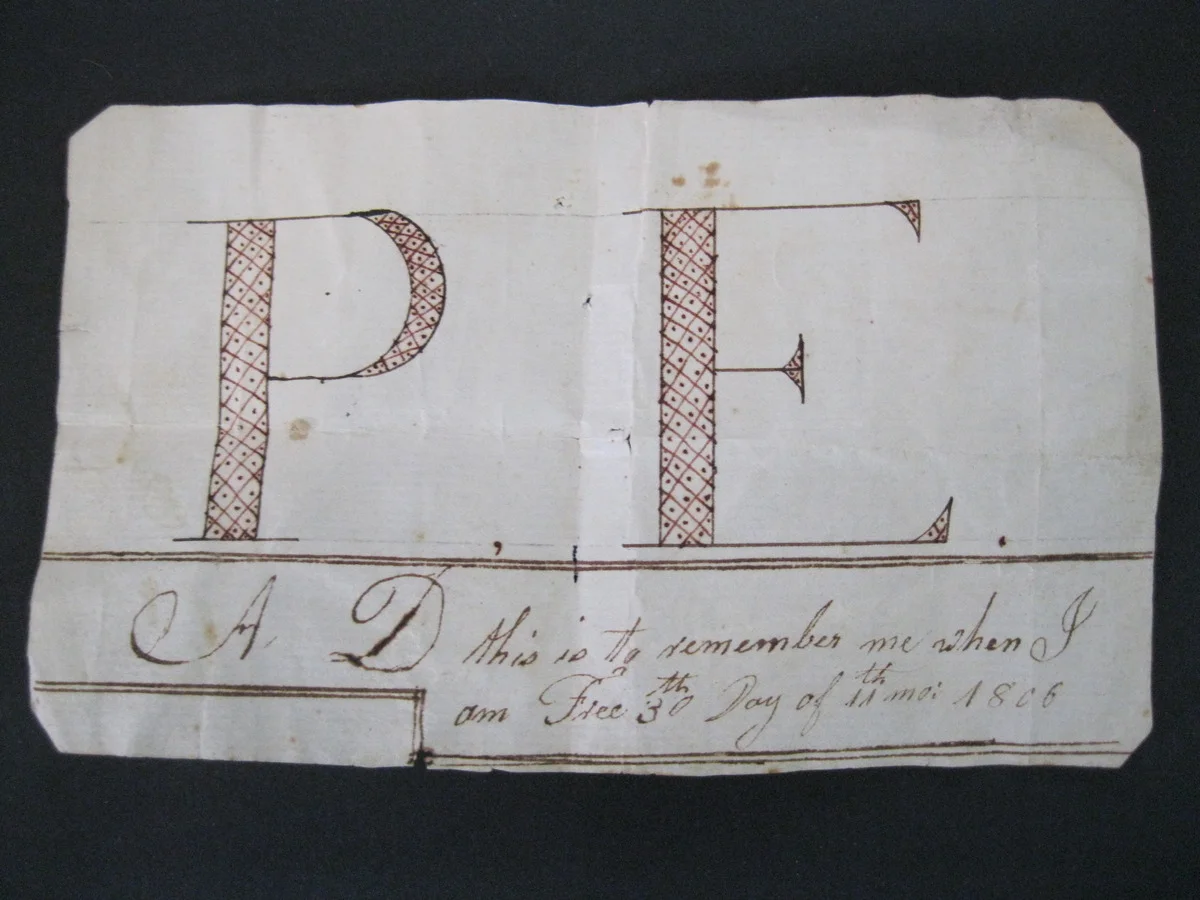 P, E.
A D this is to remember me when I
am Free 30th Day of 11th mo: 1806